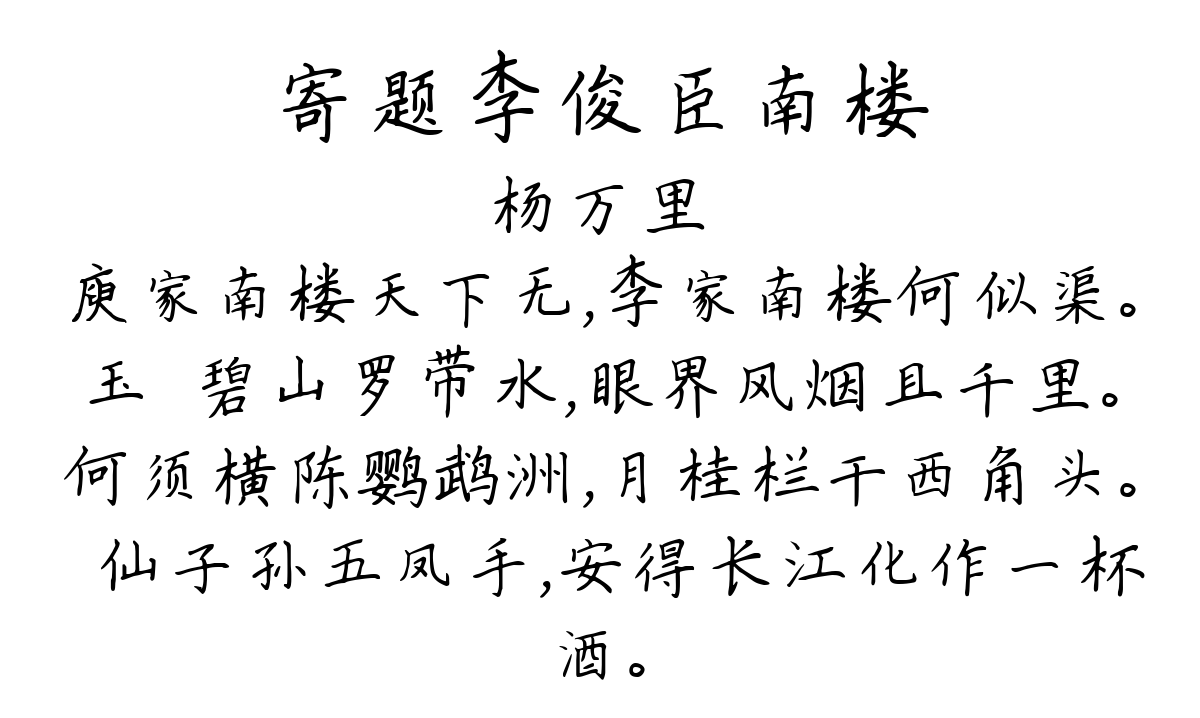 寄题李俊臣南楼
杨万里
庾家南楼天下无,李家南楼何似渠。
玉 碧山罗带水,眼界风烟且千里。
何须横陈鹦鹉洲,月桂栏干西角头。
仙子孙五凤手,安得长江化作一杯
酒。